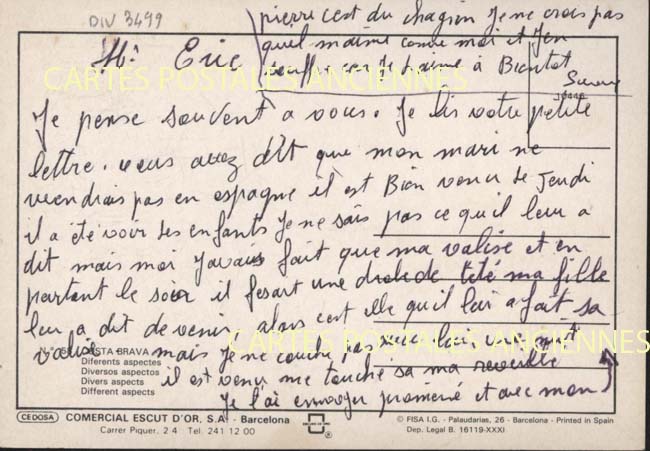 DIV 3499
pierre c'est du chagrin Je ne crois pas
quil maime comme moi et J'en
car Je l'aime à Bientot
Mr Eric
CARTES POSTALES ANCIENNES
Je pense souvent a vous. Je lis votre petite
lettre. vous avez dit que mon mari ne
viendrais pas en espagne il est Bien venu le Jeudi
il a été voir ses enfants Je ne sais pas ce quil leur a
dit mais moi J'avais fait que ma valise et en
partant le soir il fesart une drole de tété ma fille
leur a dit de venir alors c'est elle qu'il lui a fait sa
valise mais Je ne couche pas avec lui une nuit
CARTES POSTALES ANCIENNES
il est venu me touche sa ma reveille
Je l'ai envoyer promené et avec mon
COSTA BRAVA
Diferents aspectes
Diversos aspectos
Divers aspects
Different aspects
CEDOSA COMERCIAL ESCUT D'OR, S.A. - Barcelona
Carrer Piquer, 2 4 Tel. 241 12 00
® 
© FISA I.G. - Palaudarias, 26 - Barcelona - Printed in Spain
Dep. Legal B. 16119-XXXI